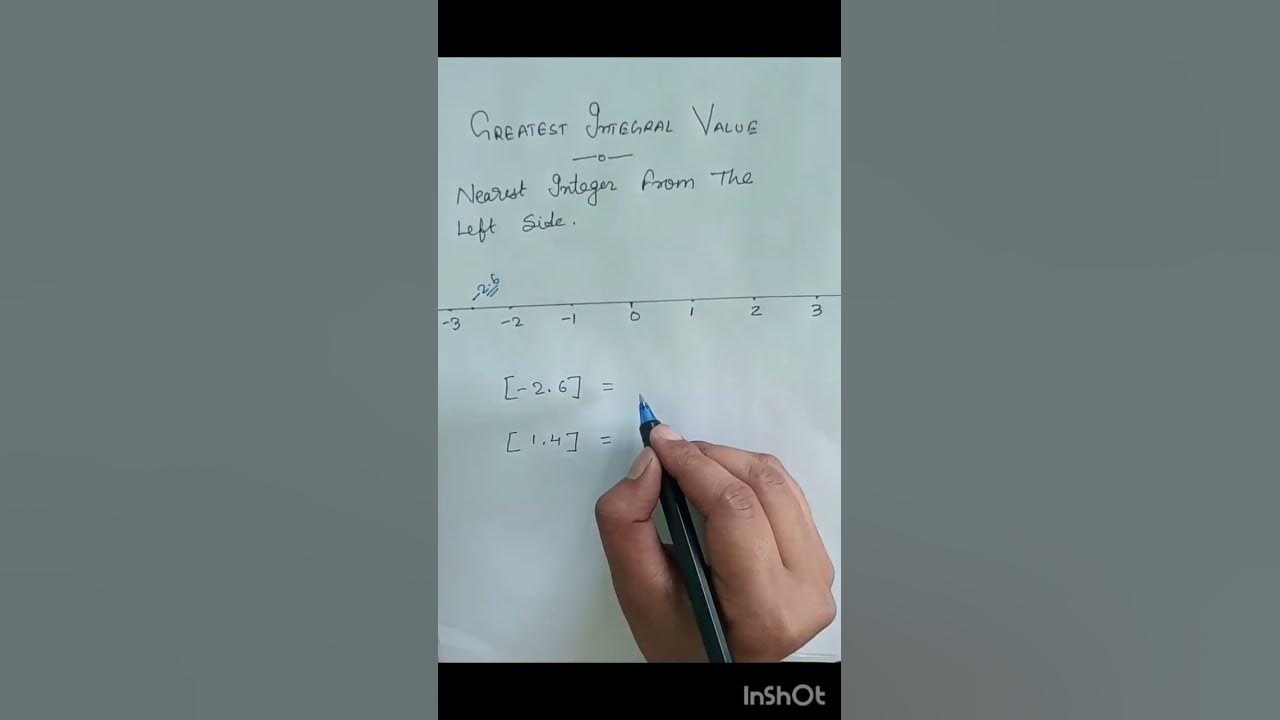 GREATEST INTEGRAL VALUE
Nearest Integer from The
Left Side.
-2.6
-3 -2 -1 0 1 2 3
[-2.6] =
[1.4] =
InShOt